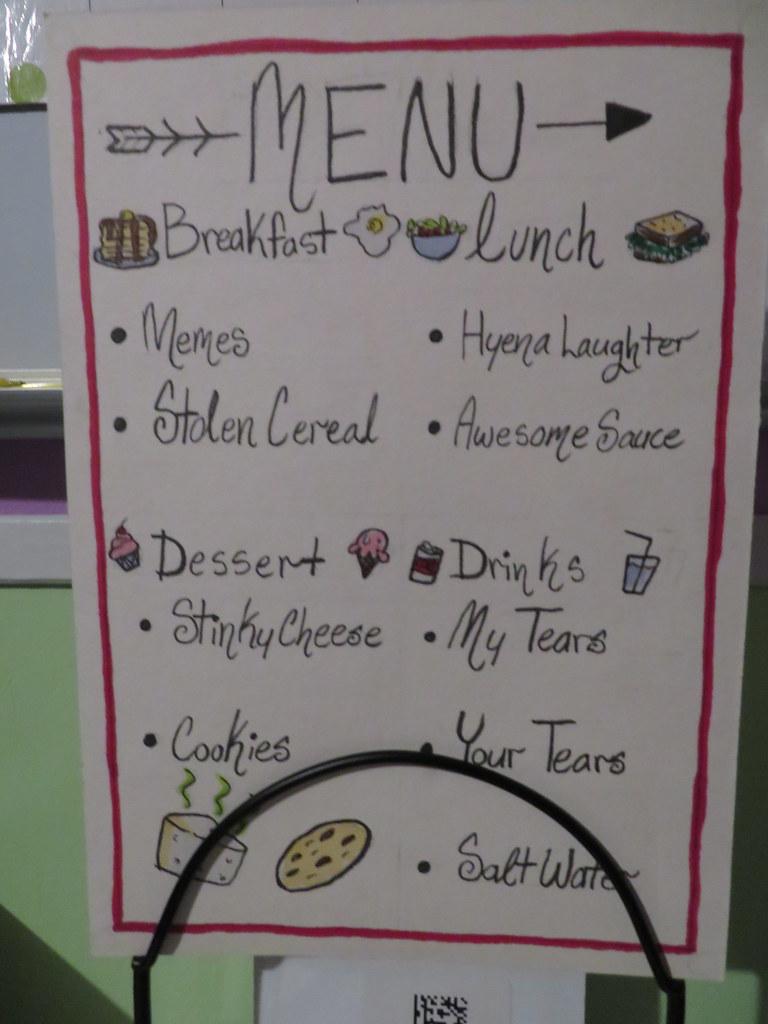 MENU
Breakfast
Memes
Stolen Cereal
Lunch
Hyena Laughter
Awesome Sauce
Dessert
Stinky Cheese
Cookies
Drinks
My Tears
Your Tears
Salt Water